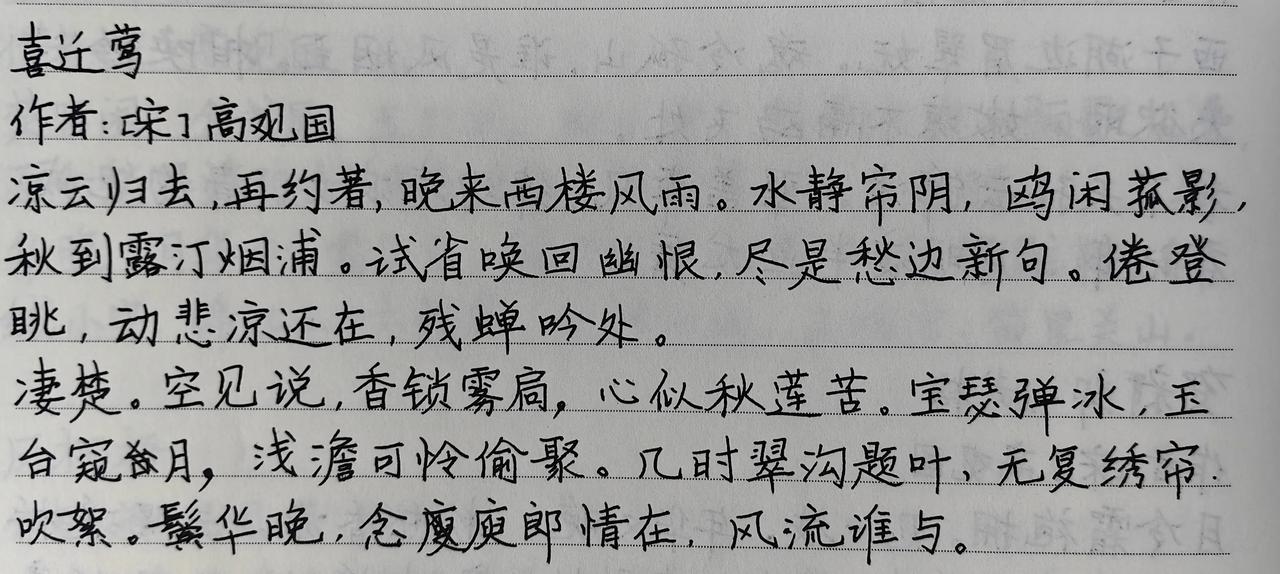 喜迁莺
作者:[宋]高观国
凉云归去,再约著,晚来西楼风雨。水静帘阴,鸥闲菰影,
秋到露汀烟浦。试省唤回幽恨,尽是愁边新句。倦登
眺,动悲凉还在,残蝉吟处。
凄楚。空见说,香锁雾扃,心似秋莲苦。宝瑟弹冰,玉
台窥月,浅澹可怜偷聚。几时翠沟题叶,无复绣帘.
吹絮。鬓华晚,念庾郎情在,风流谁与。